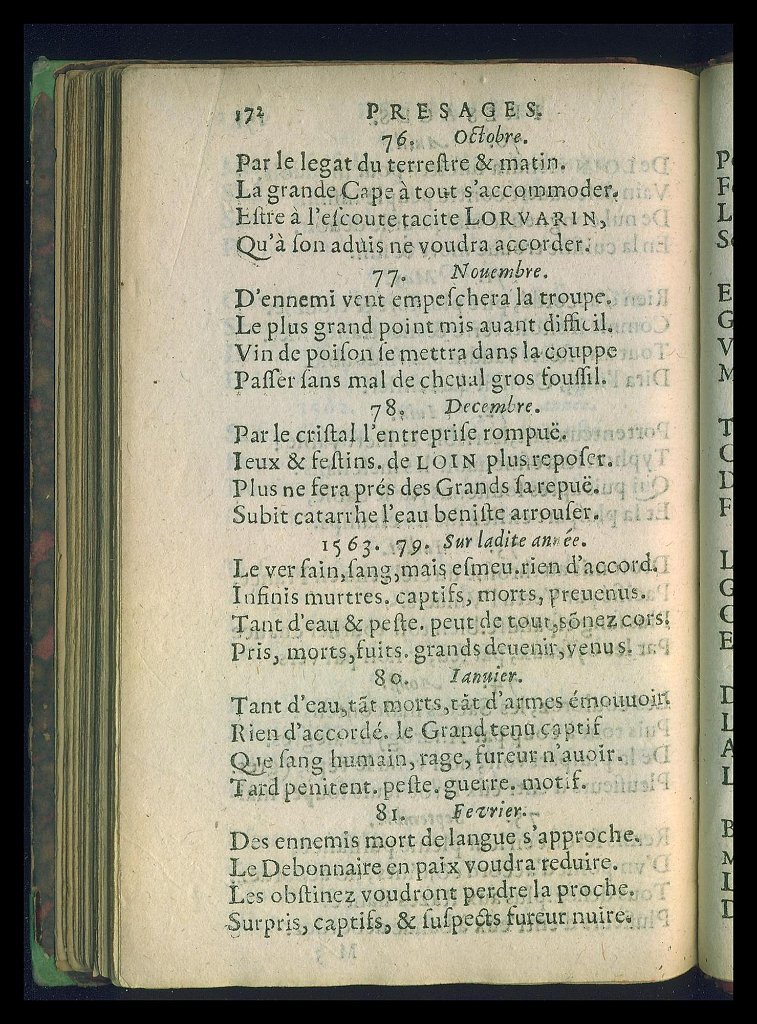 172 PRESAGES.
76. Octobre.
Par le legat du terreſtre & matin.
La grande Cape à tout s'accommoder.
Eſtre à l'eſcoute tacite LORVARIN,
Qu'à ſon aduis ne voudra accorder.
77. Nouembre.
D'ennemi vent empeſchera la troupe.
Le plus grand point mis auant difficil.
Vin de poiſon ſe mettra dans la couppe
Paſſer ſans mal de cheual gros fouſſil.
78. Decembre.
Par le criſtal l'entrepriſe rompuë.
Ieux & feſtins. de LOIN plus repoſer.
Plus ne fera prés des Grands ſa repuë.
Subit catarrhe l'eau beniſte arrouſer.
1563. 79. Sur ladite année.
Le ver ſain, ſang, mais eſmeu. rien d'accord.
Infinis murtres. captifs, morts, preuenus.
Tant d'eau & peſte. peut de tout, sõnez cors!
Pris, morts, fuits. grands deuenir, venus.
80. Ianuier.
Tant d'eau, tãt morts, tãt d'armes émouuoir.
Rien d'accordé. le Grand tenu captif
Que ſang humain, rage, fureur n'auoir.
Tard penitent. peſte. guerre. motif.
81. Fevrier.
Des ennemis mort de langue s'approche.
Le Debonnaire en paix voudra reduire.
Les obſtinez voudront perdre la proche.
Surpris, captifs, & ſuſpects fureur nuire.